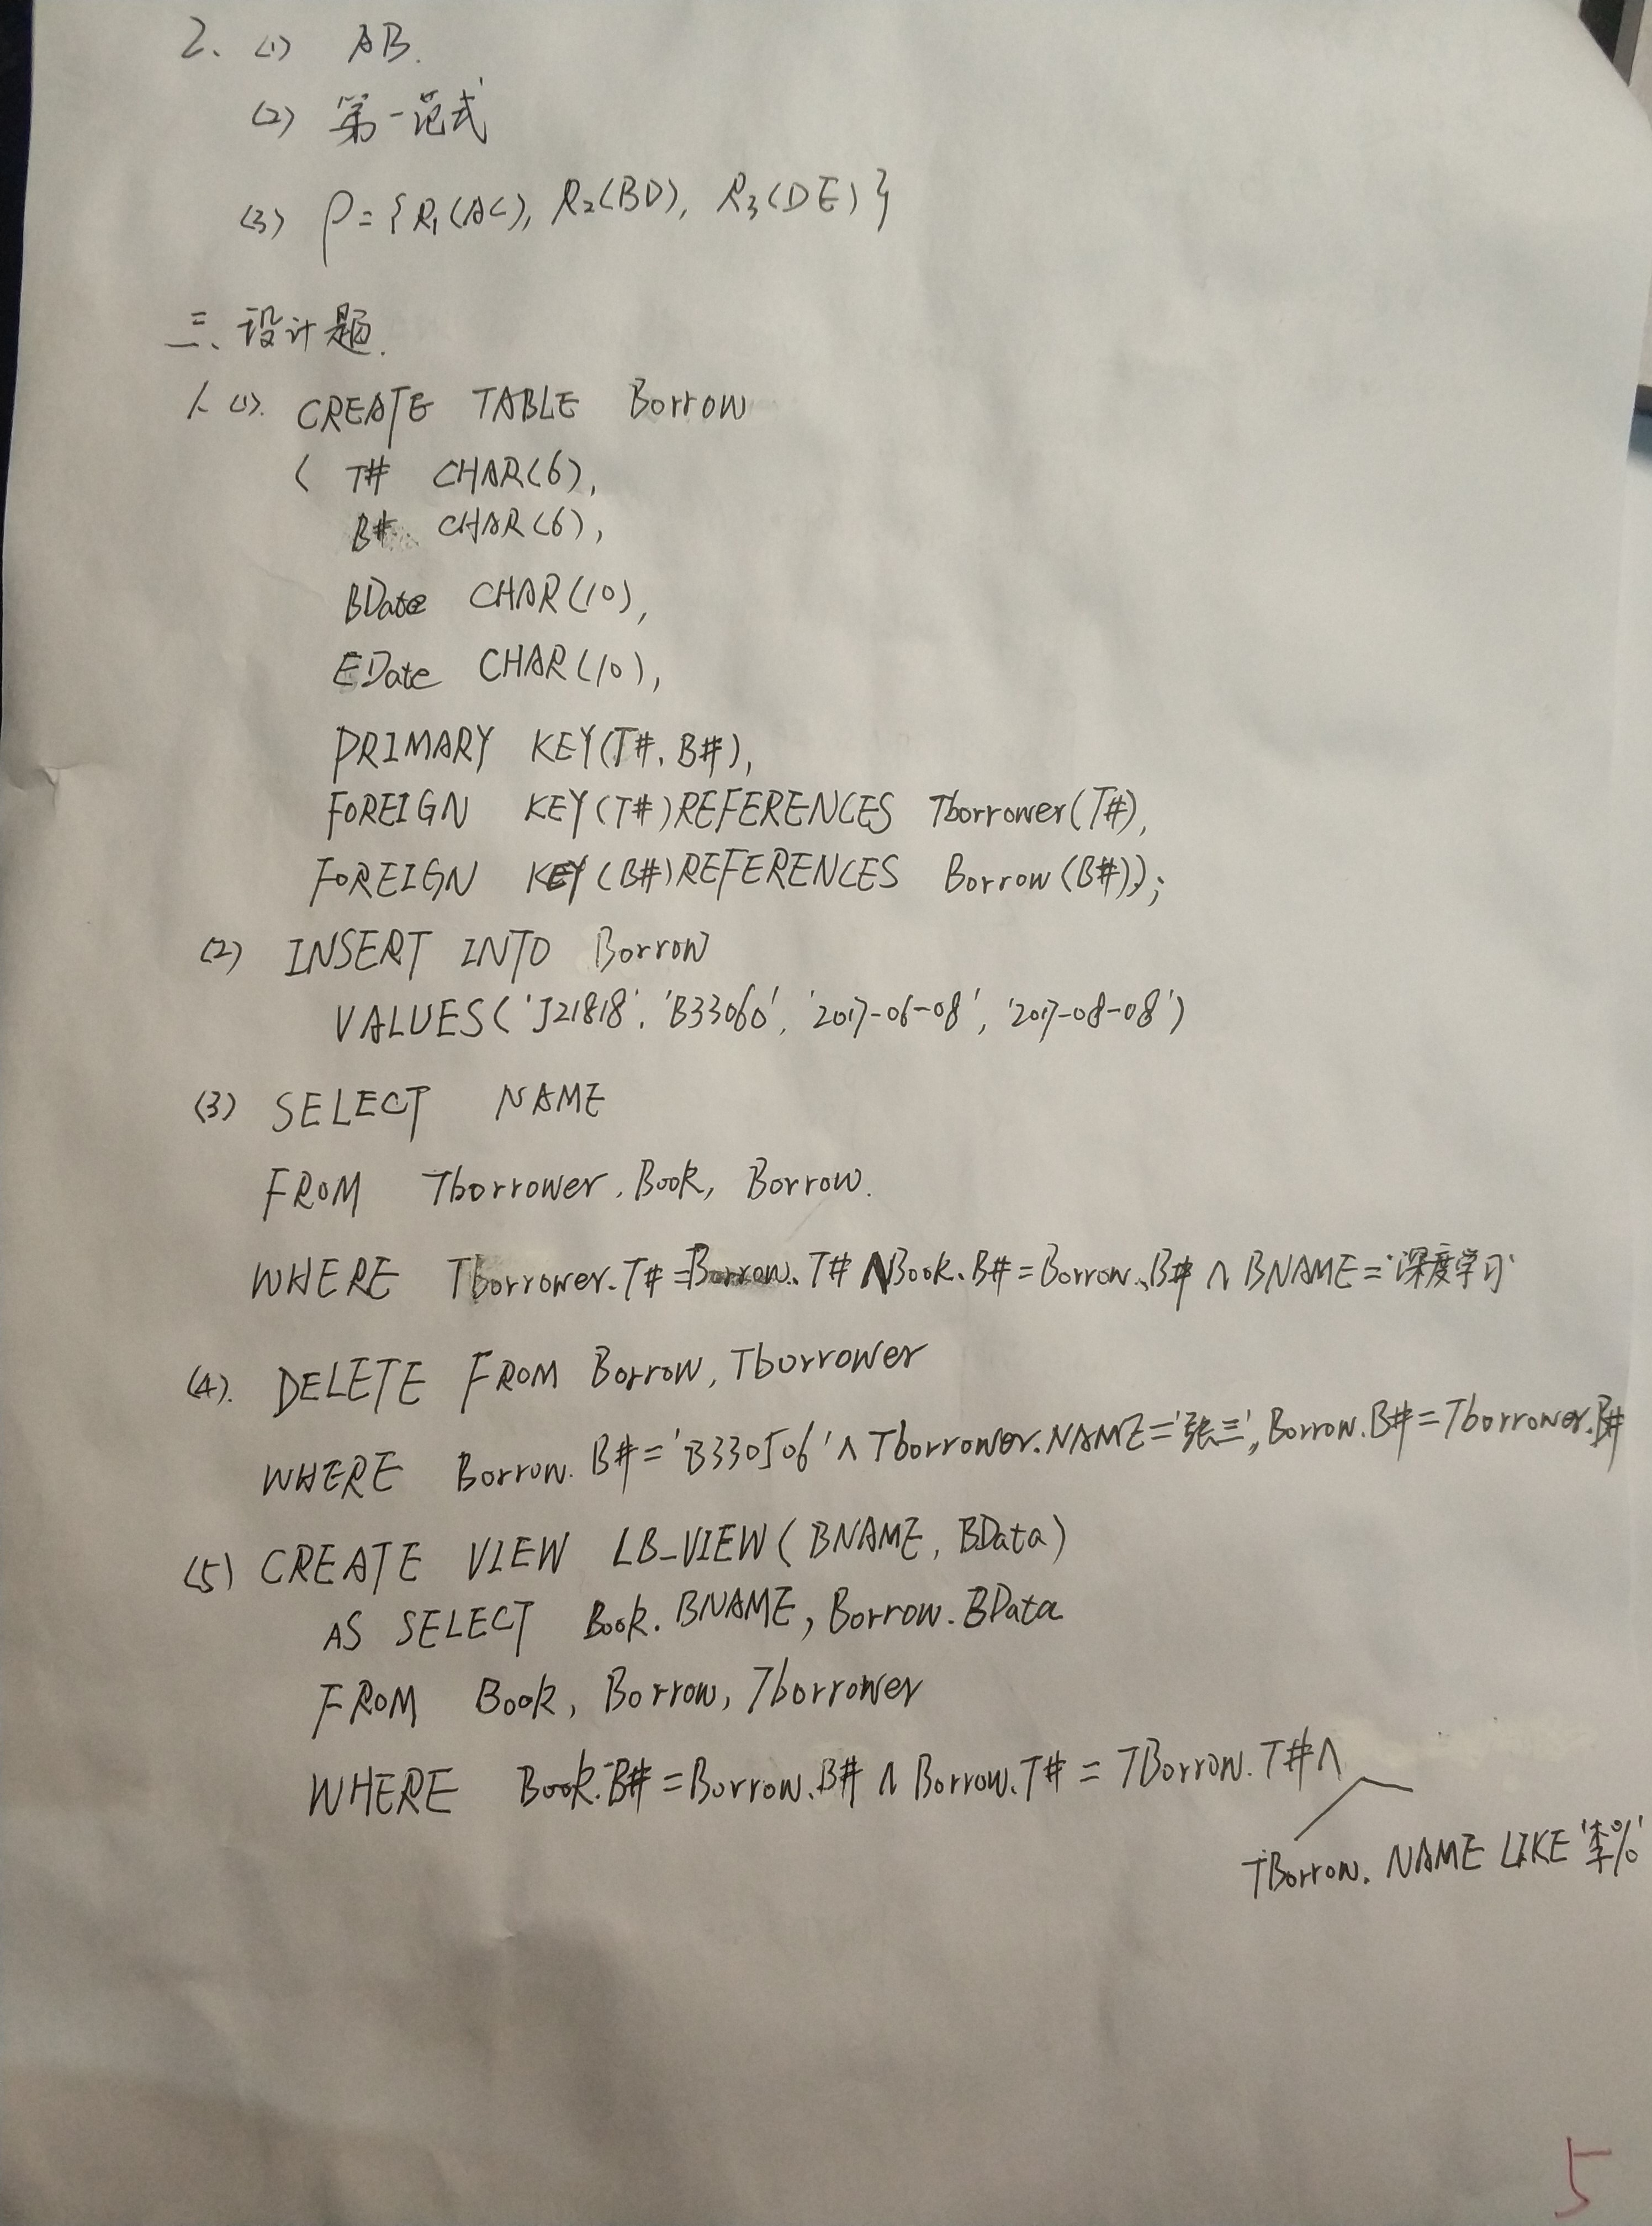 2、(1) AB.
(2) 第一范式
(3) ρ={R₁(AC), R₂(BD), R₃(DE)}
三、设计题.
1. (1). CREATE TABLE Borrow
( T# CHAR(6),
B# CHAR(6),
BDate CHAR(10),
EDate CHAR(10),
PRIMARY KEY(T#, B#),
FOREIGN KEY(T#)REFERENCES Tborrower(T#),
FOREIGN KEY(B#)REFERENCES Borrow(B#));
(2) INSERT INTO Borrow
VALUES('J21818', 'B33060', '2017-06-08', '2017-08-08')
(3) SELECT NAME
FROM Tborrower, Book, Borrow.
WHERE Tborrower.T#=Borrow.T# ∧ Book.B#=Borrow.B# ∧ BNAME='深度学习'
(4). DELETE FROM Borrow, Tborrower
WHERE Borrow.B#='B330506' ∧ Tborrower.NAME='张三', Borrow.B#=Tborrower.B#
(5) CREATE VIEW LB_VIEW(BNAME, BData)
AS SELECT Book.BNAME, Borrow.BData
FROM Book, Borrow, Tborrower
WHERE Book.B#=Borrow.B# ∧ Borrow.T# = TBorrow.T# ∧
TBorrow.NAME LIKE '李%'
5